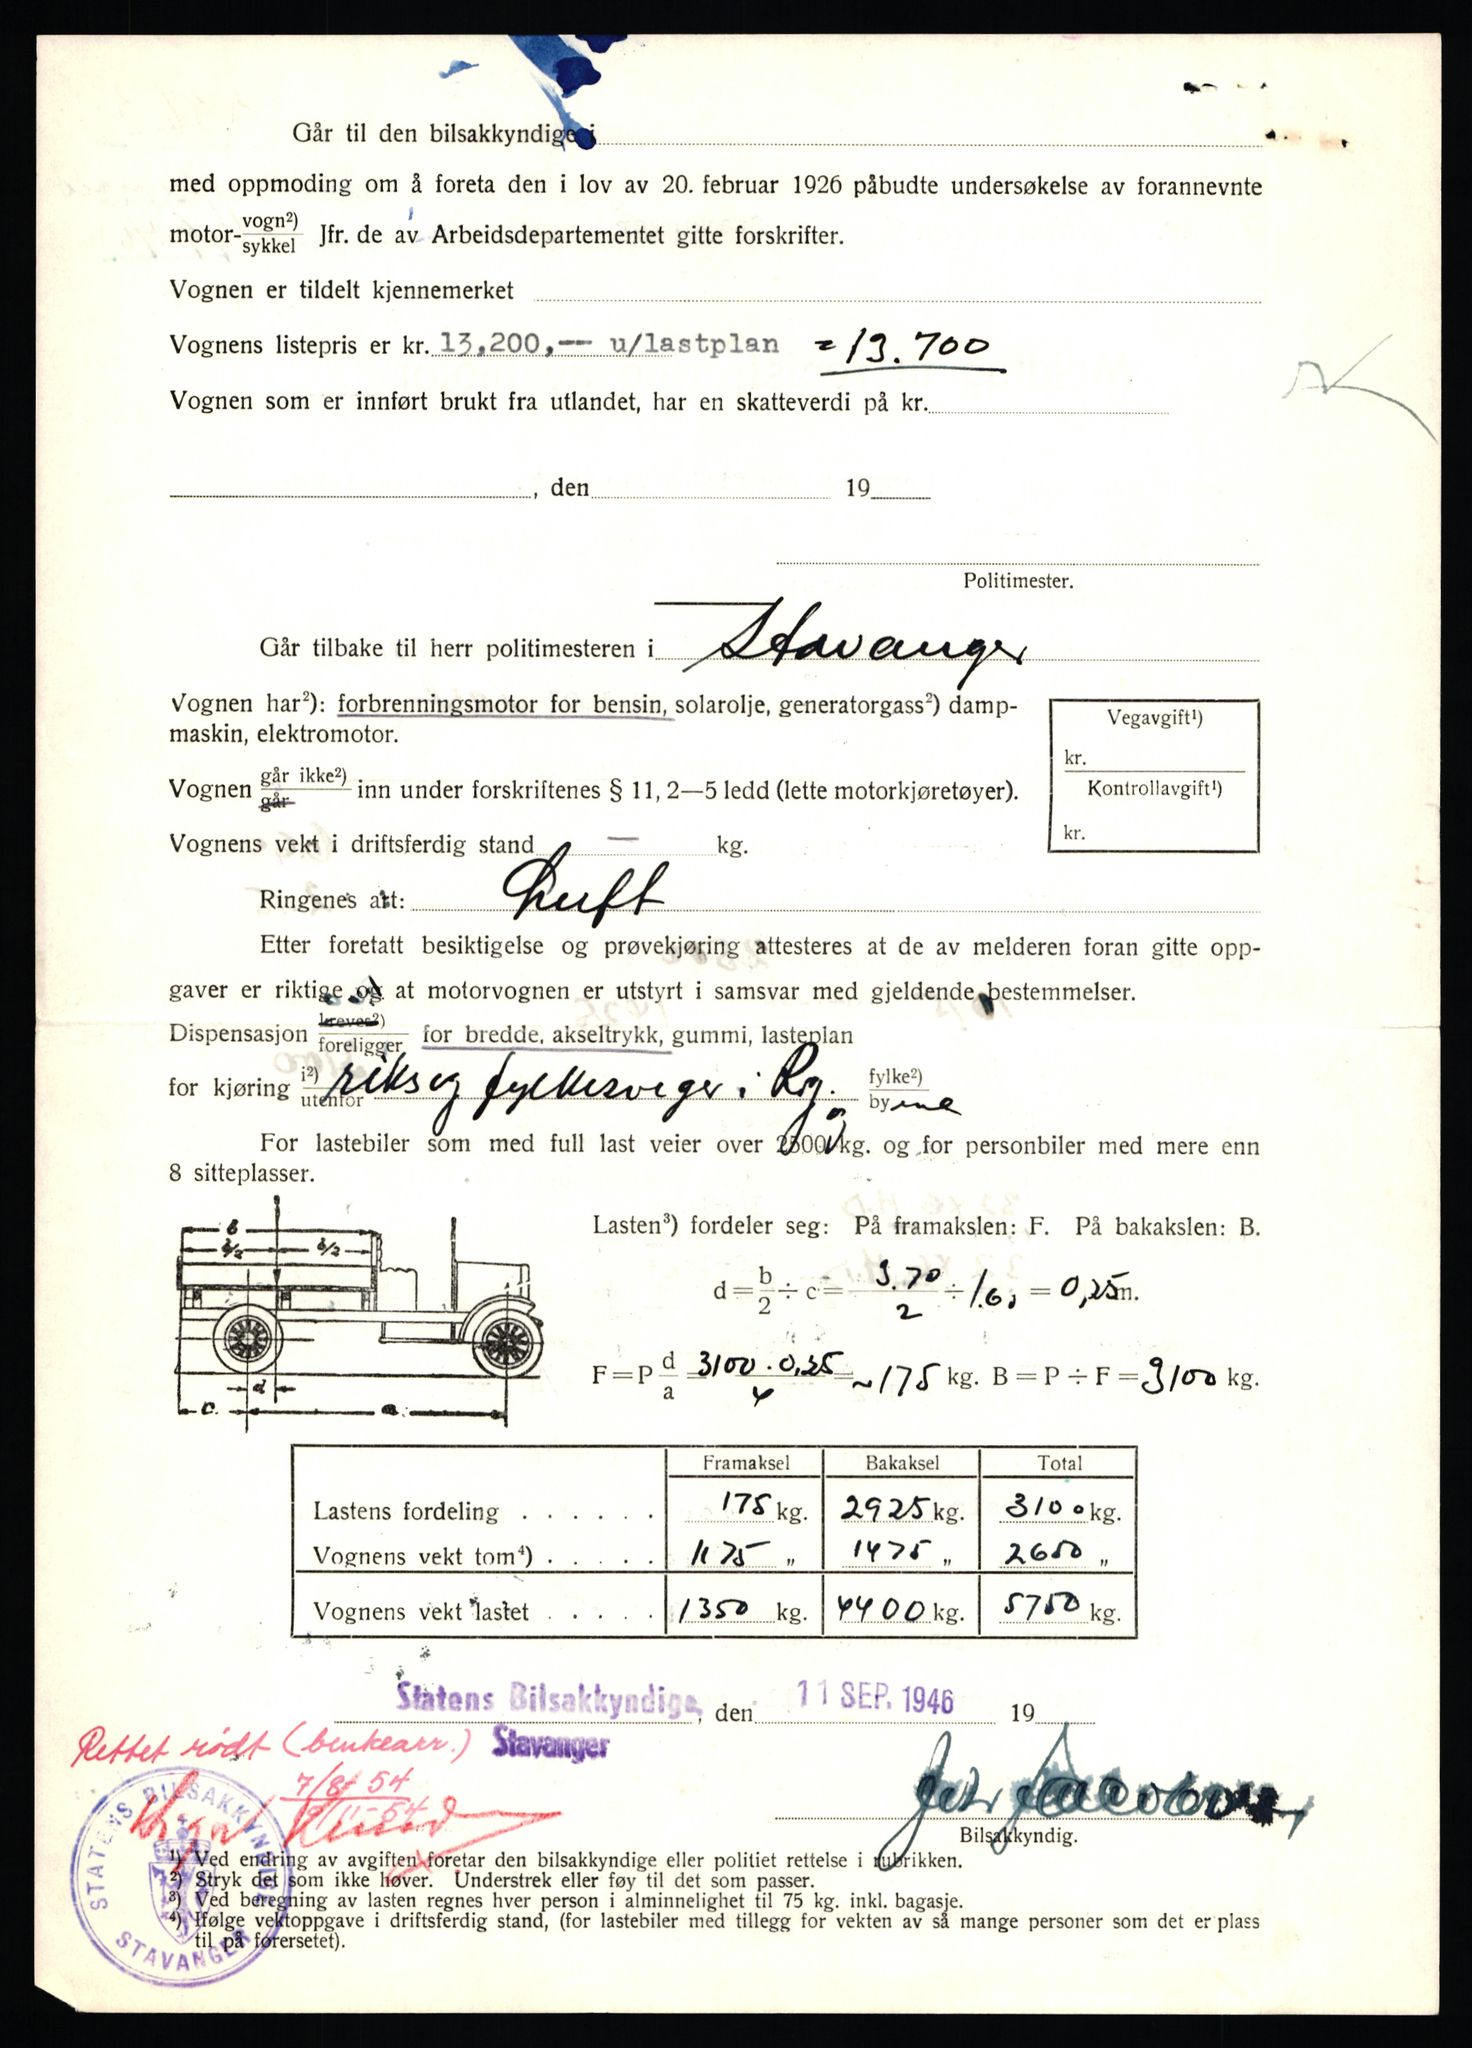 Går til den bilsakkyndige i
med oppmoding om å foreta den i lov av 20. februar 1926 påbudte undersøkelse av forannevnte
motor- vogn²) sykkel Jfr. de av Arbeidsdepartementet gitte forskrifter.
Vognen er tildelt kjennemerket
Vognens listepris er kr. 13,200,-- u/lastplan = 13.700
Vognen som er innført brukt fra utlandet, har en skatteverdi på kr.
, den 19
Politimester.
Går tilbake til herr politimesteren i Stavanger
Vognen har²): forbrenningsmotor for bensin, solarolje, generatorgass²) damp-
maskin, elektromotor.
Vegavgift¹)
kr.
Kontrollavgift¹)
kr.
Vognen går ikke²) går inn under forskriftenes § 11, 2—5 ledd (lette motorkjøretøyer).
Vognens vekt i driftsferdig stand — kg.
Ringenes art: Luft
Etter foretatt besiktigelse og prøvekjøring attesteres at de av melderen foran gitte opp-
gaver er riktige og at motorvognen er utstyrt i samsvar med gjeldende bestemmelser.
Dispensasjon kreves²) foreligger for bredde, akseltrykk, gummi, lasteplan
for kjøring i²) utenfor riks og fylkesveger i Rog. fylke²) byene
For lastebiler som med full last veier over 2500 kg. og for personbiler med mere enn
8 sitteplasser.
b
b/2 b/2
d
c. a.
Lasten³) fordeler seg: På framakslen: F. På bakakslen: B.
d = b/2 ÷ c = 3.70/2 ÷ 1.6 = 0,25 m.
F = P d/a 3100 . 0,25/4 = ~175 kg. B = P ÷ F = 3100 kg.
Framaksel Bakaksel Total
Lastens fordeling . . . . . . 175 kg. 2925 kg. 3100 kg.
Vognens vekt tom⁴) . . . . . 1175 „ 1475 „ 2650 „
Vognens vekt lastet . . . . . 1350 kg. 4400 kg. 5750 kg.
Statens Bilsakkyndige, den 11 SEP. 1946 19
Stavanger
Rettet rødt (benkearr.)
7/8-54
9/11-54
Bilsakkyndig.
STATENS BILSAKKYNDIGE
STAVANGER
¹) Ved endring av avgiften foretar den bilsakkyndige eller politiet rettelse i rubrikken.
²) Stryk det som ikke høver. Understrek eller føy til det som passer.
³) Ved beregning av lasten regnes hver person i alminnelighet til 75 kg. inkl. bagasje.
⁴) Ifølge vektoppgave i driftsferdig stand, (for lastebiler med tillegg for vekten av så mange personer som det er plass
til på førersetet).